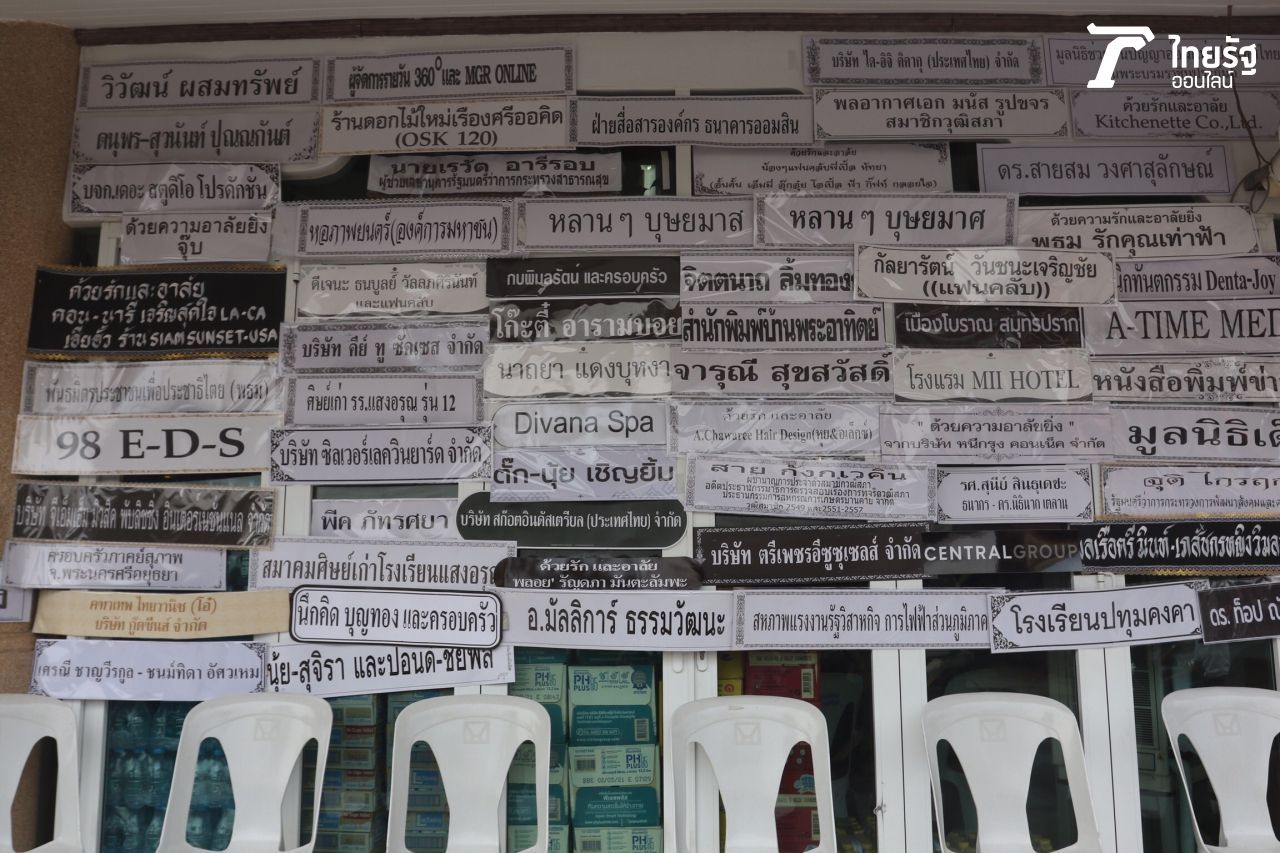 ไทยรัฐ
ออนไลน์
วิวัฒน์ ผสมทรัพย์
ผู้จัดการรายวัน 360° และ MGR ONLINE
บริษัท ได-อิจิ คิคากุ (ประเทศไทย) จำกัด
ร้านดอกไม้ใหม่เรืองศรีออคิด
(OSK 120)
ฝ่ายสื่อสารองค์กร ธนาคารออมสิน
พลอากาศเอก มนัส รูปขจร
สมาชิกวุฒิสภา
ด้วยรักและอาลัย
Kitchenette Co.,Ltd.
คนุพร-สุวนันท์ ปุณณกันต์
นายเรวัต อารีรอบ
ผู้ช่วยเลขานุการรัฐมนตรีว่าการกระทรวงสาธารณสุข
ด้วยรักและอาลัย
ดร.สายสม วงศาสุลักษณ์
บจก.เดอะ สตูดิโอ โปรดักชั่น
ด้วยความอาลัยยิ่ง
จุ๊บ
หอภาพยนตร์(องค์การมหาชน)
หลาน ๆ บุษยมาส
หลาน ๆ บุษยมาศ
ด้วยความรักและอาลัยยิ่ง
พธม รักคุณเท่าฟ้า
ด้วยรักและอาลัย
ดอน-นารี เจริญสุดใจ LA-CA
ร้าน SIAM SUNSET-USA
ดีเจนะ ธนบูลย์ วัลลภศิรินันท์
และแฟนคลับ
กบพิมลรัตน์ และครอบครัว
จิตตนาถ ลิ้มทอง
กัลยารัตน์ วันชนะเจริญชัย
((แฟนคลับ))
Denta-Joy
โก๊ะตี๋ อารามบอย
สำนักพิมพ์บ้านพระอาทิตย์
เมืองโบราณ สมุทรปราการ
A-TIME MED
บริษัท คีย์ ทู ซัคเซส จำกัด
นาถยา แดงบุหงา
จารุณี สุขสวัสดิ์
โรงแรม MII HOTEL
หนังสือพิมพ์ข่า
พันธมิตรประชาชนเพื่อประชาธิปไตย (พธม)
ศิษย์เก่า รร.แสงอรุณ รุ่น 12
98 E-D-S
Divana Spa
ด้วยรัก และอาลัย
A.Chawaree Hair Design
" ด้วยความอาลัยยิ่ง "
จากบริษัท หนึ่งกรุง คอนเน็ค จำกัด
มูลนิธิเด็
บริษัท ซิลเวอร์เลควินยาร์ด จำกัด
ติ๊ก-นุ้ย เชิญยิ้ม
สาย กังกเวคิน
รศ.สุนีย์ สินธุเดชะ
บริษัท จีเอ็มเอ็ม มิวสิค พับลิชชิ่ง อินเตอร์เนชั่นแนล จำกัด
พีค ภัทรศยา
บริษัท สก๊อตอินดัสเตรียล (ประเทศไทย) จำกัด
บริษัท ตรีเพชรอีซูซุเซลส์ จำกัด
CENTRALGROUP
ครอบครัวภาคย์สุภาพ
จ.พระนครศรีอยุธยา
สมาคมศิษย์เก่าโรงเรียนแสงอรุ
ด้วยรัก และอาลัย
พลอย' รัญดภา มันตะลัมพะ
คฑาเทพ ไทยวานิช (โอ๋)
บริษัท กู๊ดซีนส์ จำกัด
นึกคิด บุญทอง และครอบครัว
อ.มัลลิการ์ ธรรมวัฒนะ
สหภาพแรงงานรัฐวิสาหกิจ การไฟฟ้าส่วนภูมิภาค
โรงเรียนปทุมคงคา
ดร. ท็อป
เศรณี ชาญวีรกูล - ชนม์ทิดา อัศวเหม
นุ้ย-สุจิรา และปอนด์-ชัยพล
PH
PLUS